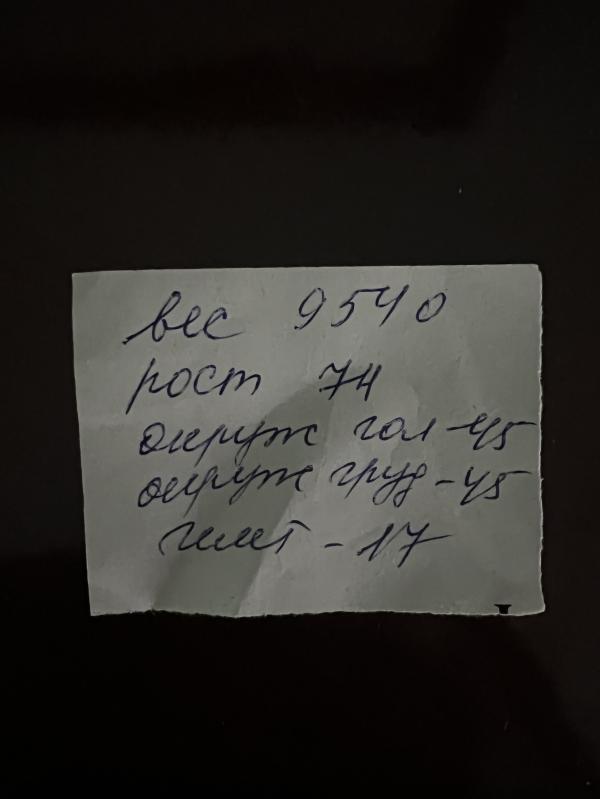 вес 9540
рост 74
окруж гол - 45
окруж груд - 45
- 17